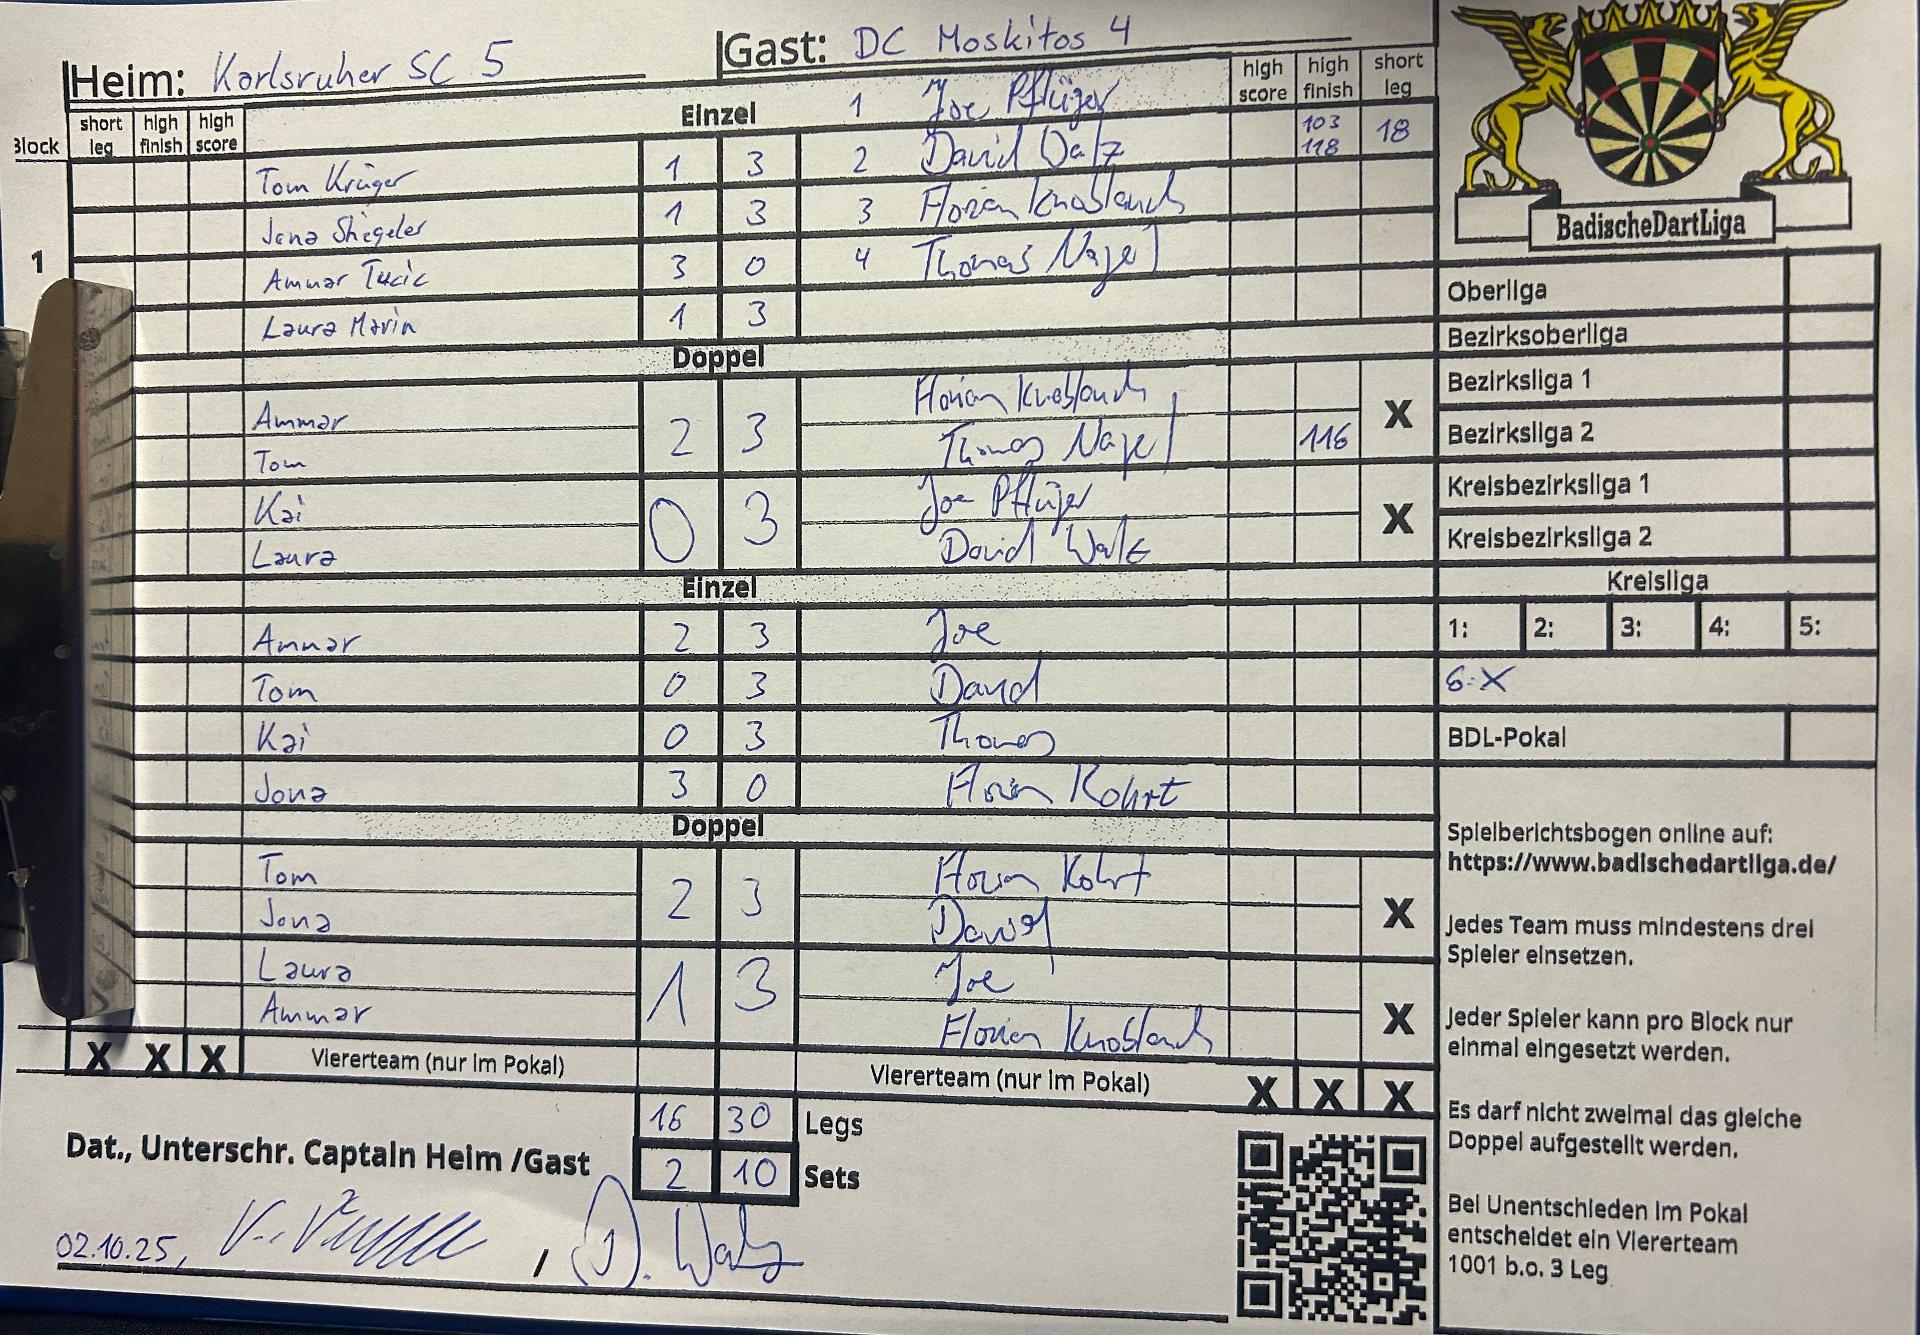 Heim: Karlsruher SC 5 Gast: DC Moskitos 4
Block short leg high finish high score Einzel 1 Joe Pflüger high score high finish short leg
Tom Krüger 1 3 2 David Walz 103 118 18
Jona Stiegeler 1 3 3 Florian Knoblauch
1 Ammar Tucic 3 0 4 Thomas Nagel
Laura Marin 1 3
Doppel
Ammar 2 3 Florian Knoblauch X
Tom Thomas Nagel 116
Kai 0 3 Joe Pflüger X
Laura David Walz
Einzel
Ammar 2 3 Joe
Tom 0 3 David
Kai 0 3 Thomas
Jona 3 0 Florian Kohrt
Doppel
Tom 2 3 Florian Kohrt X
Jona David
Laura 1 3 Joe X
Ammar Florian Knoblauch
X X X Vierterteam (nur im Pokal) Vierterteam (nur im Pokal) X X X
16 30 Legs
2 10 Sets
Dat., Unterschr. Captain Heim /Gast
02.10.25, / D. Walz
BadischeDartLiga
Oberliga
Bezirksoberliga
Bezirksliga 1
Bezirksliga 2
Kreisbezirksliga 1
Kreisbezirksliga 2
Kreisliga
1: 2: 3: 4: 5:
6: X
BDL-Pokal
Spielberichtsbogen online auf:
https://www.badischedartliga.de/
Jedes Team muss mindestens drei
Spieler einsetzen.
Jeder Spieler kann pro Block nur
einmal eingesetzt werden.
Es darf nicht zweimal das gleiche
Doppel aufgestellt werden.
Bei Unentschieden im Pokal
entscheidet ein Viererteam
1001 b.o. 3 Leg